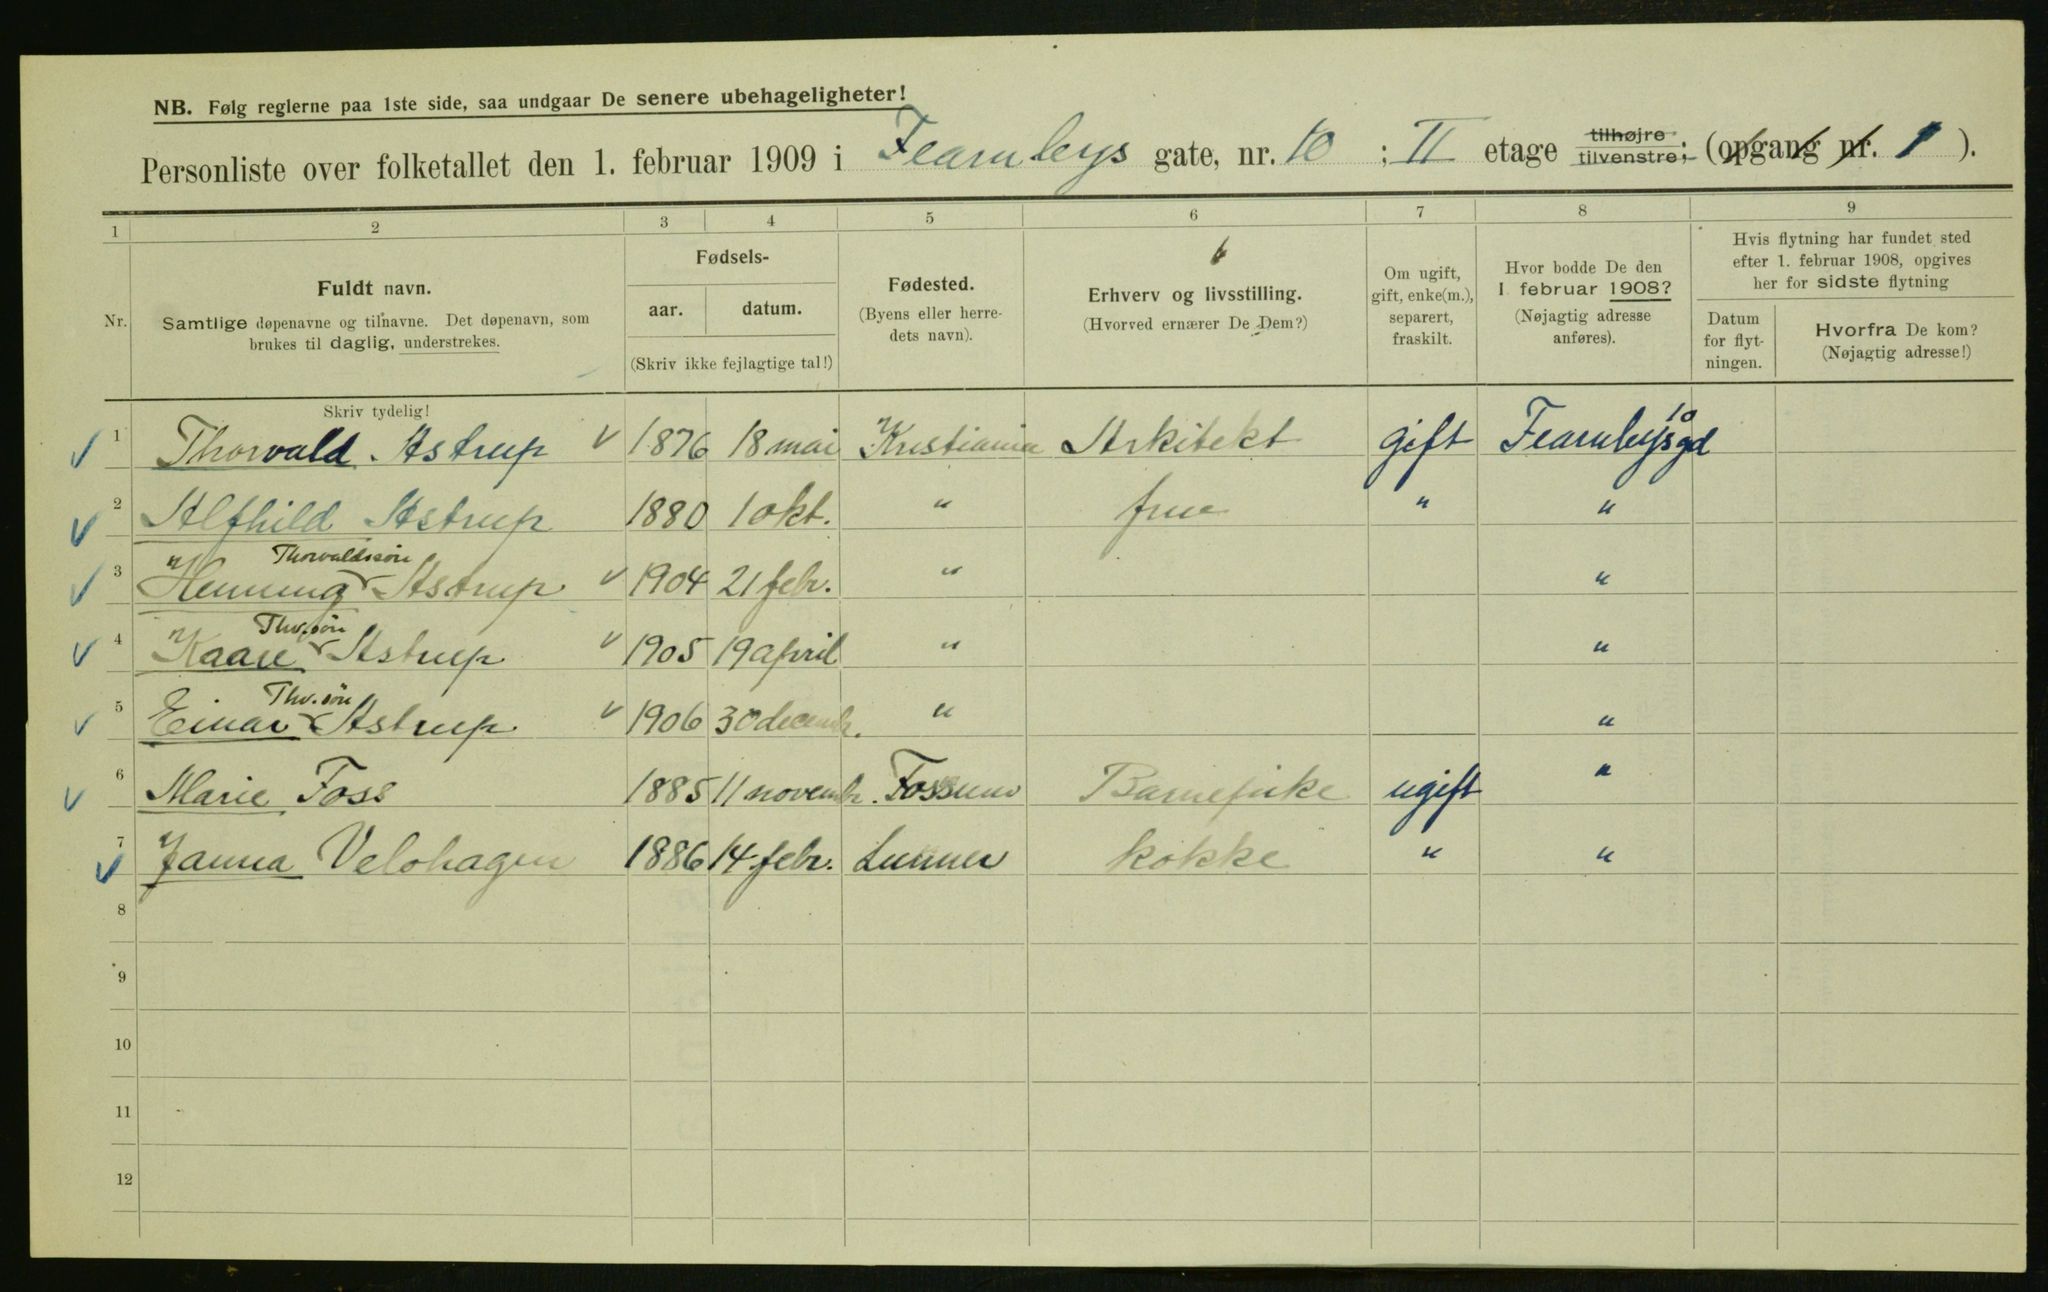 NB. Følg reglerne paa 1ste side, saa undgaar De senere ubehageligheter!
Personliste over folketallet den 1. februar 1909 i Fearnleys gate, nr. 10 ; II etage tilhøjre tilvenstre; (opgang nr. 1 ).
1 2 3 4 5 6 7 8 9
Nr.
Fuldt navn.
Samtlige døpenavne og tilnavne. Det døpenavn, som
brukes til daglig, understrekes.
Skriv tydelig!
Fødsels-
aar. datum.
(Skriv ikke fejlagtige tal!)
Fødested.
(Byens eller herre-
dets navn).
6
Erhverv og livsstilling.
(Hvorved ernærer De Dem?)
Om ugift,
gift, enke(m.),
separert,
fraskilt.
Hvor bodde De den
1 februar 1908?
(Nøjagtig adresse
anføres).
Hvis flytning har fundet sted
efter 1. februar 1908, opgives
her for sidste flytning
Datum
for flyt-
ningen.
Hvorfra De kom?
(Nøjagtig adresse!)
1 Thorvald Astrup 1876 18 mai Kristiania Arkitekt gift Fearnleysgd 10
2 Alfhild Astrup 1880 1 okt. " frue " "
3 Henning Thorvaldssøn Astrup 1904 21 febr. " "
4 Kaare Thv.søn Astrup 1905 19 april " "
5 Einar Thv.søn Astrup 1906 30 decembr. " "
6 Marie Foss 1885 11 novembr. Fossum Barnepike ugift "
7 Janna Velohagen 1886 14 febr. Lunner kokke " "
8
9
10
11
12